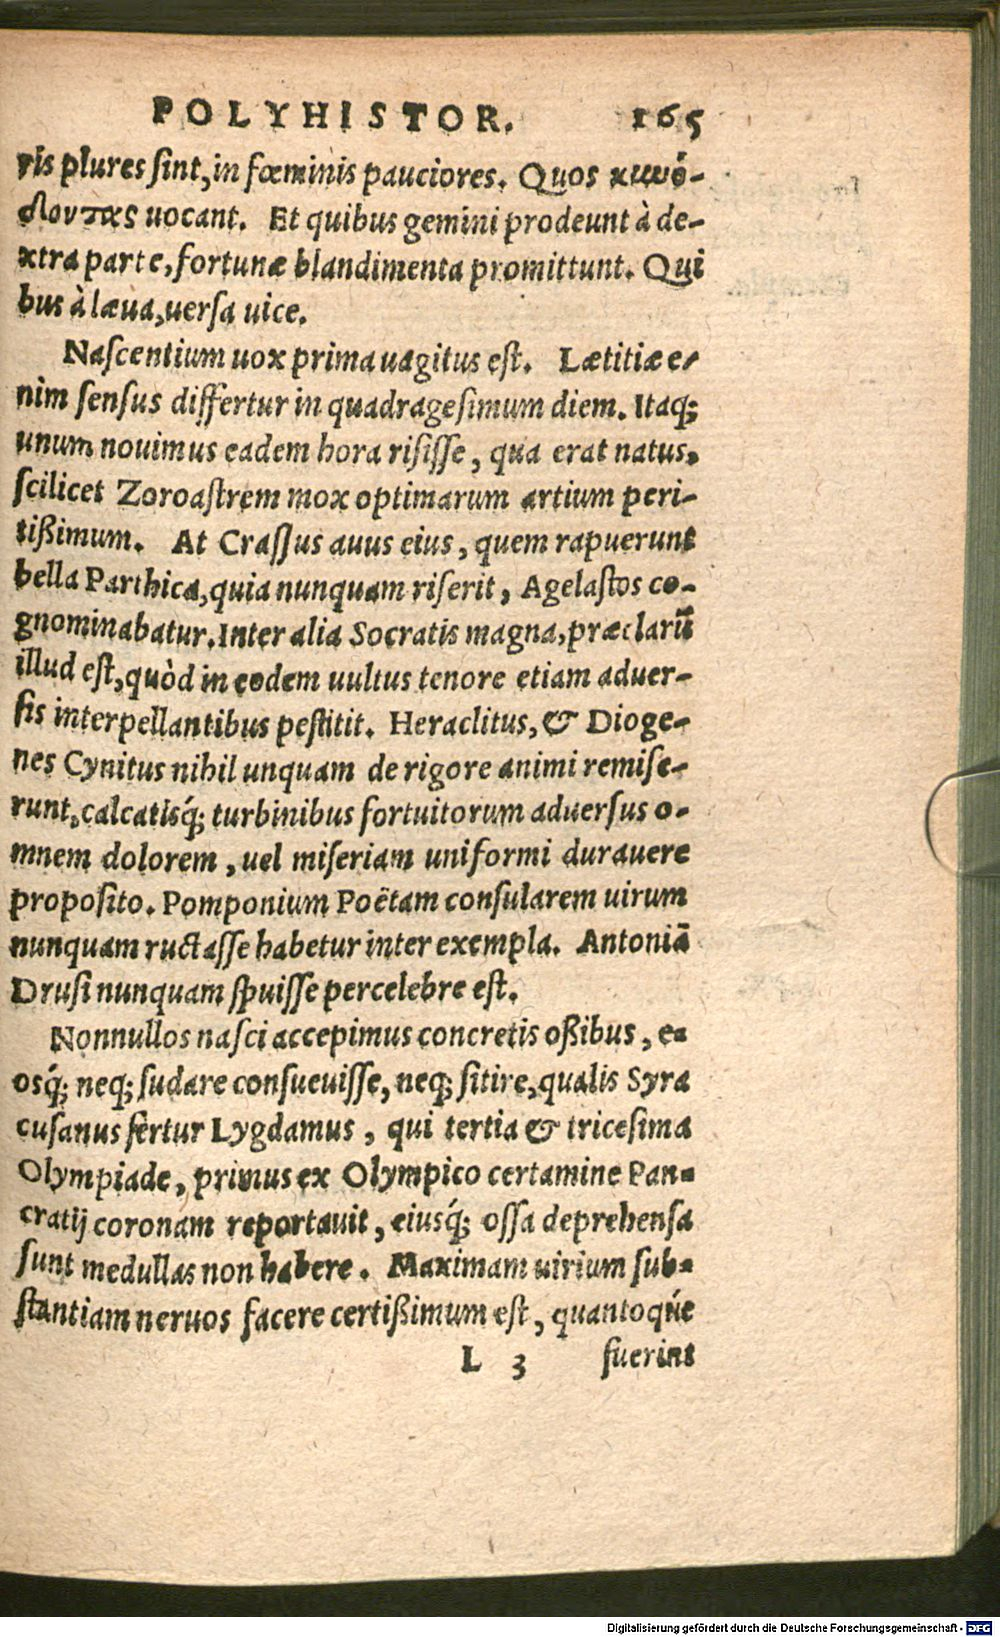 POLYHISTOR. 165
ris plures ſint, in fœminis pauciores. Quos κυνό-
δοντας uocant. Et quibus gemini prodeunt à de-
xtra parte, fortunæ blandimenta promittunt. Qui
bus à læua, uerſa uice.
Naſcentium uox prima uagitus eſt. Lætitiæ e-
nim ſenſus differtur in quadrageſimum diem. Itaq;
unum nouimus eadem hora riſiſſe, qua erat natus.
ſcilicet Zoroaſtrem mox optimarum artium peri-
tißimum. At Craſſus auus eius, quem rapuerunt
bella Parthica, quia nunquam riſerit, Agelaſtos co-
gnominabatur. Inter alia Socratis magna, præclarũ
illud eſt, quòd in eodem uultus tenore etiam aduer-
ſis interpellantibus peſtitit. Heraclitus, & Dioge-
nes Cynitus nihil unquam de rigore animi remiſe-
runt, calcatisq́; turbinibus fortuitorum aduerſus o-
mnem dolorem, uel miſeriam uniformi durauere
propoſito. Pomponium Poëtam conſularem uirum
nunquam ructaſſe habetur inter exempla. Antoniã
Druſi nunquam ſpuiſſe percelebre eſt.
Nonnullos naſci accepimus concretis oßibus, e-
osq́; neq; ſudare conſueuiſſe, neq; ſitire, qualis Syra
cuſanus fertur Lygdamus, qui tertia & triceſima
Olympiade, primus ex Olympico certamine Pan-
cratij coronam reportauit, eiusq́; oſſa deprehenſa
ſunt medullas non habere. Maximam uirium ſub-
ſtantiam neruos facere certißimum eſt, quantoq́ue
L 3 fuerint
Digitalisierung gefördert durch die Deutsche Forschungsgemeinschaft - DFG